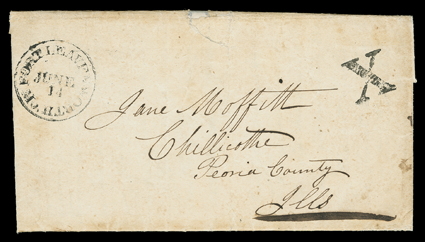 FORT LEAVENWORTH M.
JUNE
14
Jane Moffitt
Chillicothe
Peoria County
Ills